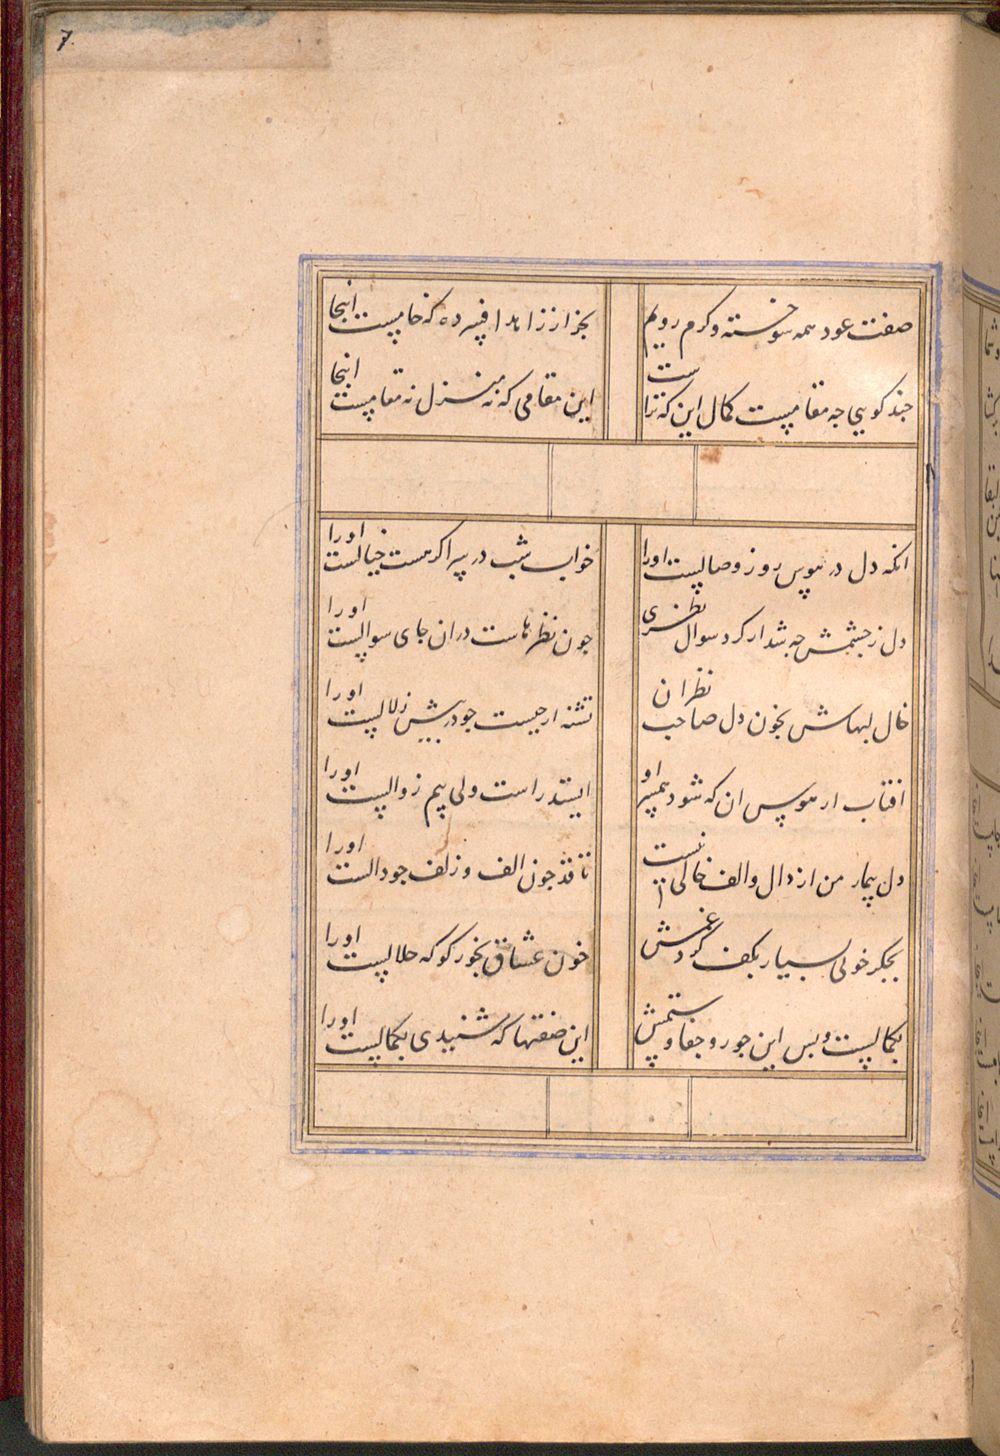 7
صفت عود همه سوخته و کرم رویم
بجز از زاهد افسرده که خامست اینجا
چند کویی چه مقامست کمال این که تراست
این مقامی که نه منزل نه مقامست اینجا
انکه دل در هوس روز وصالست اورا
خواب شب در سر اکر هست خیالست اورا
دل ز چشمش چو شد ار کرد سوال نظری
چون نظرهاست دران جای سوالست اورا
خال لبهاش بخون دل صاحب نظران
تشنه ار چیست چو در پیش زلالست اورا
افتاب ار هوس ان که شود همسر او
ایستد راست ولی بیم زوالست اورا
دل بیمار من از دال و الف خالی نیست
تا قد چون الف و زلف چو دالست اورا
بجکر خولی بسیار بکف کرد غمش
خون عشاق بخور کو که حلالست اورا
بکمالست و بس این جور و جفا و ستمش
این صفتها که شنیدی بکمالست اورا